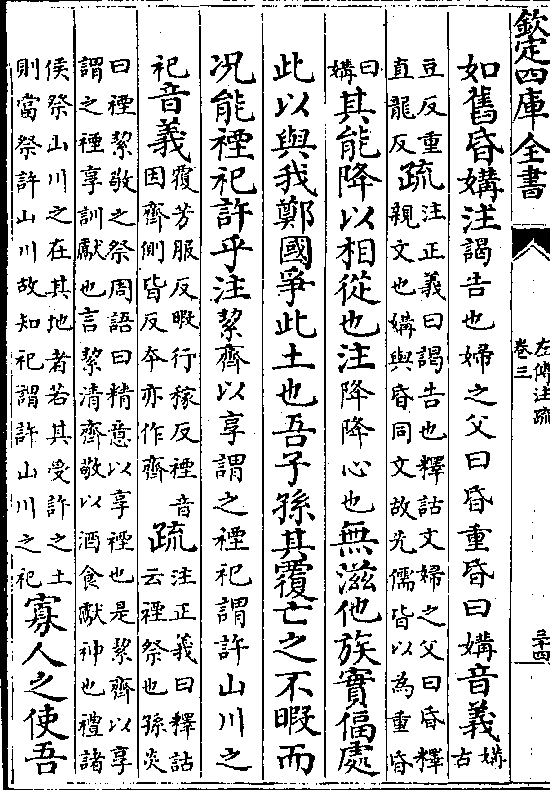 欽定四庫全書
左傳注疏
卷三
三十四
如舊昏媾注謁告也婦之父曰昏重昏曰媾音義媾古
豆反重直龍反疏注正義曰謁告也釋詁文婦之父曰昏釋親文也媾與昏同文故先儒皆以為重昏
曰媾其能降以相從也注降降心也無滋他族實偪處
此以與我鄭國爭此土也吾子孫其覆亡之不暇而
况能禋祀許乎注絜齊以享謂之禋祀謂許山川之
祀音義覆芳服反暇行稼反禋音因齊側皆反夲亦作齊疏注正義曰釋詁云禋祭也孫炎
曰禋絜敬之祭周語曰精意以享禋也是絜齊以享謂之禋享訓獻也言絜清齊敬以酒食獻神也禮諸
侯祭山川之在其地者若其受許之土則當祭許山川故知祀謂許山川之祀寡人之使吾